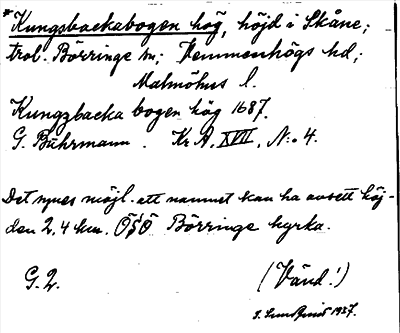 * Kungsbackabogen hög, höjd i Skåne;
trol. Börringe sn; Vemmenhögs hd;
Malmöhus l.
Kungzbacka bogen hög 1687.
G. Buhrmann. Kr. A. XVII, N:o 4.
Det synes möjl. att namnet kan ha avsett höj-
den 2,4 km. ÖSÖ Börringe kyrka.
G. 2. (Vänd!)
1937.